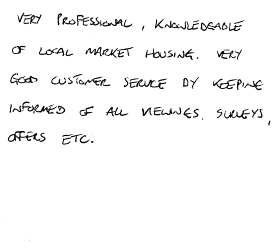 VERY PROFESSIONAL, KNOWLEDGABLE
OF LOCAL MARKET HOUSING. VERY
GOOD CUSTOMER SERVICE BY KEEPING
INFORMED OF ALL VIEWINGS, SURVEYS,
OFFERS ETC.